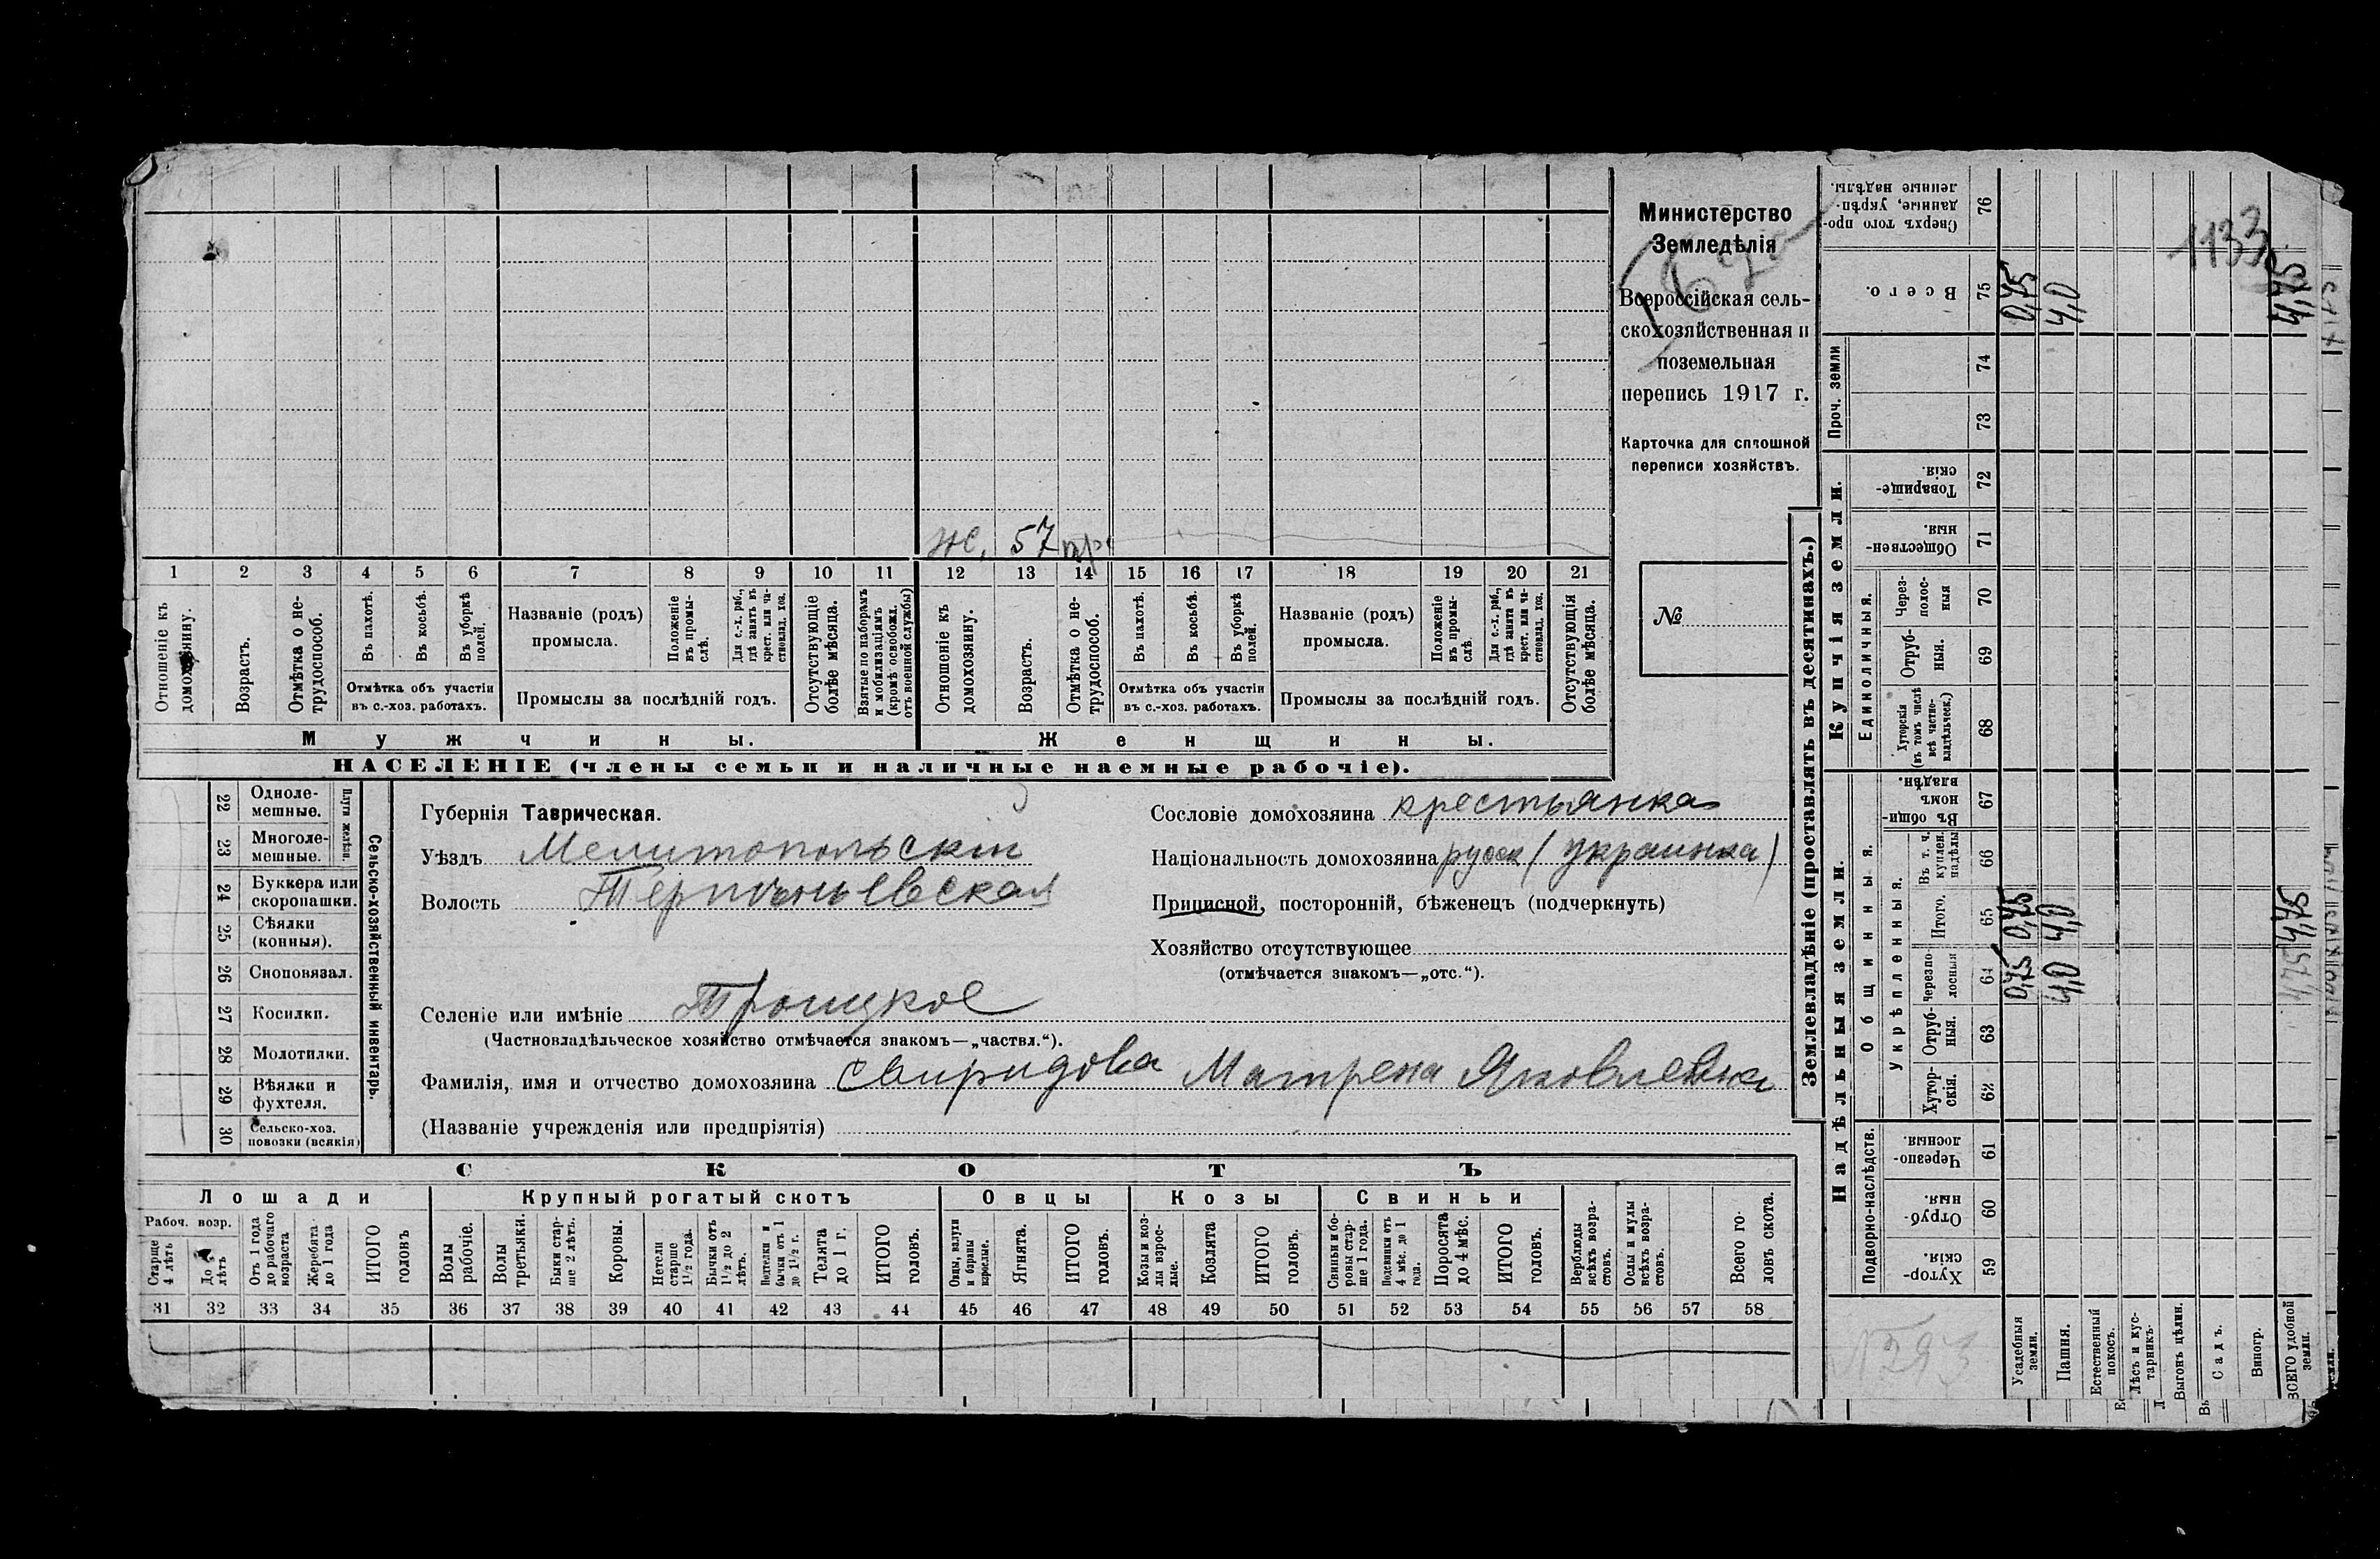 Министерство
Земледѣлія
Всероссійская сель-
скохозяйственная и
поземельная
перепись 1917 г.
Карточка для сплошной
переписи хозяйствъ.
№
ж. 57
1 2 3 4 5 6 7 8 9 10 11 12 13 14 15 16 17 18 19 20 21
Отношеніе къ домохозяину.
Возрастъ.
Отмѣтка о не-трудоспособ.
Въ пахотѣ.
Въ косьбѣ.
Въ уборкѣ полей.
Отмѣтка объ участіи
въ с.-хоз. работахъ.
Названіе (родъ)
промысла.
Положеніе въ промы-слѣ.
Для с.-х. раб., гдѣ занятъ въ крест. или ча-стновлад. хоз.
Промыслы за послѣдній годъ.
Отсутствующіе болѣе мѣсяца.
Взятые по наборамъ и мобилизаціямъ (кромѣ освобожд. отъ военной службы)
Отношеніе къ домохозяину.
Возрастъ.
Отмѣтка о не-трудоспособ.
Въ пахотѣ.
Въ косьбѣ.
Въ уборкѣ полей.
Отмѣтка объ участіи
въ с.-хоз. работахъ.
Названіе (родъ)
промысла.
Положеніе въ промы-слѣ
Для с.-х. раб., гдѣ занята въ крест. или ча-стновлад. хоз.
Промыслы за послѣдній годъ.
Отсутствующія болѣе мѣсяца.
Мужчины. Женщины.
НАСЕЛЕНІЕ (члены семьи и наличные наемные рабочіе).
22 Одноле-мешные.
23 Многоле-мешные.
Плуги желѣзн.
24 Буккера или скоропашки.
25 Сѣялки (конныя).
26 Сноповязал.
27 Косилки.
28 Молотилки.
29 Вѣялки и фухтеля.
30 Сельско-хоз. повозки (всякія)
Сельско-хозяйственный инвентарь.
Губернія Таврическая.
Уѣздъ Мелитопольскій
Волость Терпѣньевская
Селеніе или имѣніе Троицкое
(Частновладѣльческое хозяйство отмѣчается знакомъ—„частвл.“).
Фамилія, имя и отчество домохозяина Свиридова Матрена Яковлевна
(Названіе учрежденія или предпріятія)
Сословіе домохозяина крестьянка
Національность домохозяина русск (украинка)
Приписной, посторонній, бѣженецъ (подчеркнуть)
Хозяйство отсутствующее
(отмѣчается знакомъ—„отс.“).
СКОТЪ
Лошади Крупный рогатый скотъ Овцы Козы Свиньи
Рабоч. возр.
Старше 4 лѣтъ
До 4 лѣтъ
Отъ 1 года до рабочаго возраста
Жеребята до 1 года
ИТОГО головъ
Волы рабочіе.
Волы третьяки.
Быки стар-ше 2 лѣтъ.
Коровы.
Нетели старше 1½ года.
Бычки отъ 1½ до 2 лѣтъ.
Подтелки и бычки отъ 1 до 1½ г.
Телята до 1 г.
ИТОГО головъ.
Овцы, валухи и бараны взрослые.
Ягнята.
ИТОГО головъ.
Козы и коз-лы взрос-лые.
Козлята
ИТОГО головъ.
Свиньи и бо-ровы стар-ше 1 года.
Подсвинки отъ 4 мѣс. до 1 года.
Поросята до 4 мѣс.
ИТОГО головъ.
Верблюды всѣхъ возра-стовъ.
Ослы и мулы всѣхъ возра-стовъ.
Всего го-ловъ скота.
31 32 33 34 35 36 37 38 39 40 41 42 43 44 45 46 47 48 49 50 51 52 53 54 55 56 57 58
Землевладѣніе (проставлять въ десятинахъ.)
Надѣльныя земли. Купчія земли. Проч. земли
Подворно-наслѣдств.
Общинныя.
Укрѣпленныя.
Единоличныя.
Хутор-скія. 59
Отруб-ныя. 60
Черезпо-лосныя. 61
Хутор-скія. 62
Отруб-ныя. 63
Черезпо-лосныя 64
Итого. 65
Въ т. ч. куплен. надѣлы 66
Въ общи-номъ владѣн. 67
Хуторскія (въ томъ числѣ всѣ частно-владѣльческ.) 68
Отруб-ныя. 69
Через-полос-ныя 70
Обществен-ныя. 71
Товарище-скія. 72
73
74
Всего. 75
Сверхъ того про-данные, укрѣп-ленные надѣлы. 76
Усадебныя земли. 0,75 0,75 0,75
Пашня. 4,0 4,0 4,0
Естественный покосъ.
Лѣсъ и кус-тарникъ.
Выгонъ цѣлин.
Садъ.
Виногр.
ВСЕГО удобной земли. 4,75 4,75 4,75
1133
№293